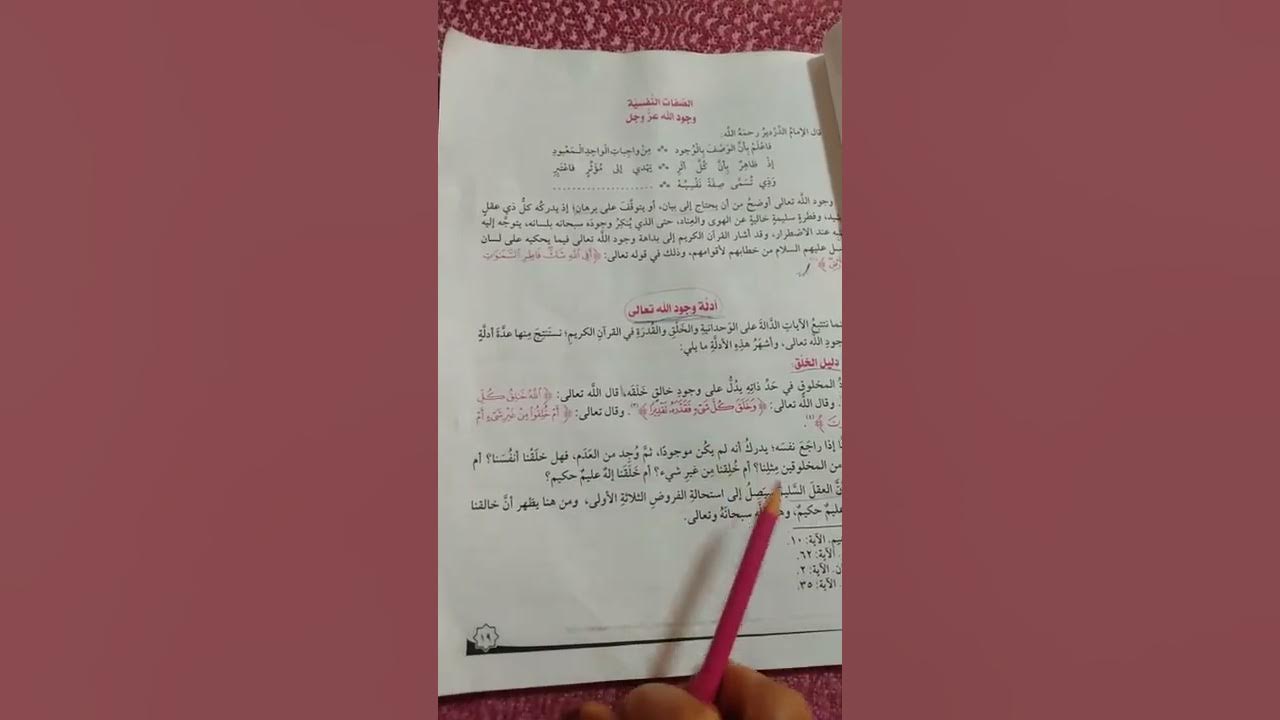 الصفات النفسية
وجود الله عز وجل
قال الإمامُ الدَّرْدِيرُ رحمَهُ اللَّه:
فَاعْلَمْ بِأَنَّ الوَصْفَ بِالْوُجودِ ** مِنْ وَاجِباتِ الْوَاحِدِ الْمَعْبُودِ
إِذْ ظَاهِرٌ بِأَنَّ كُلَّ أَثَرِ ** يَهْدِي إلى مُؤَثِّرٍ فَاعْتَبِرِ
وَذِي تُسَمَّى صِفَةً نَفْسِيَّهْ ** ....................
وجود اللَّه تعالى أوضحُ من أن يحتاج إلى بيان، أو يتوقَّفَ على برهانٍ؛ إذ يدركُه كلُّ ذي عقلٍ
وفطرةٍ سليمةٍ خاليةٍ عن الهوى والعِناد، حتى الذي يُنكِرُ وجودَه سبحانه بلسانه، يتوجَّه إليه
عند الاضطرار، وقد أشار القرآن الكريم إلى بداهة وجود اللَّه تعالى فيما يحكيه على لسان
عليهم السلام من خطابهم لأقوامهم، وذلك في قوله تعالى: ﴿أَفِي ٱللَّهِ شَكٌّ فَاطِرِ ٱلسَّمَٰوَٰتِ
أدلة وجود الله تعالى
تتبعُ الآياتِ الدَّالةَ على الوَحدانيةِ والخَلْقِ والقُدرَةِ في القرآنِ الكريمِ؛ نستَنتِجَ مِنها عدَّةَ أدلَّةٍ
اللَّه تعالى، وأشهَرُ هذِهِ الأدلَّةِ ما يلي:
دليل الخلق
المخلوقِ في حَدِّ ذاتِهِ يدُلُّ على وجودِ خالقٍ خلَقَه، قال اللَّه تعالى: ﴿ٱللَّهُ خَٰلِقُ كُلِّ
وقال اللَّه تعالى: ﴿وَخَلَقَ كُلَّ شَىْءٍ فَقَدَّرَهُۥ تَقْدِيرًا﴾(٣). وقال تعالى: ﴿أَمْ خُلِقُواْ مِنْ غَيْرِ شَىْءٍ أَمْ
﴾(٤).
إذا راجَعَ نفسَه؛ يدركُ أنه لم يكُن موجودًا، ثمَّ وُجِد من العَدَم، فهل خلَقْنا أنفُسَنا؟ أم
من المخلوقين مِثلِنا؟ أم خُلِقنا مِن غيرِ شيء؟ أم خَلَقَنا إلهٌ عليمٌ حكيم؟
العقلَ السَّليمَ سيَصِلُ إلى استحالةِ الفروضِ الثلاثةِ الأولى، ومن هنا يظهر أنَّ خالقنا
عليمٌ حكيمٌ، سبحانَهُ وتعالى.
الآية: ١٠.
الآية: ٦٢.
الآية: ٢.
الآية: ٣٥.
١٩